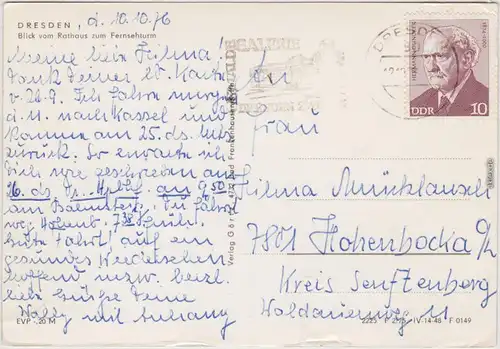 DRESDEN, d. 10.10.76
Blick vom Rathaus zum Fernsehturm
Meine liebe Hilma!
Dank Deiner lb. Karte
v. 24.9. Ich fahre morgen
d. 11. nach Kassel und
komme am 25. ds. Mts.
zurück. So erwarte ich
Dich wie geschrieben am
26. ds. am 9.50
am Bahnsteig. Du fährst
weg 7.38
Gute Fahrt! auf ein
gesundes Wiedersehen
hoffend inzw. herzl.
liebe Grüße Deine
Wally mit Anhang
EVP -.20 M
Verlag Bad Frankenhausen
DRESDEN
DDR 10
An
Frau
Hilma Mücklausch
7801 Hohenbocka N/L
Kreis Senftenberg
Waldauerweg 11
IV-14-48 F 0149